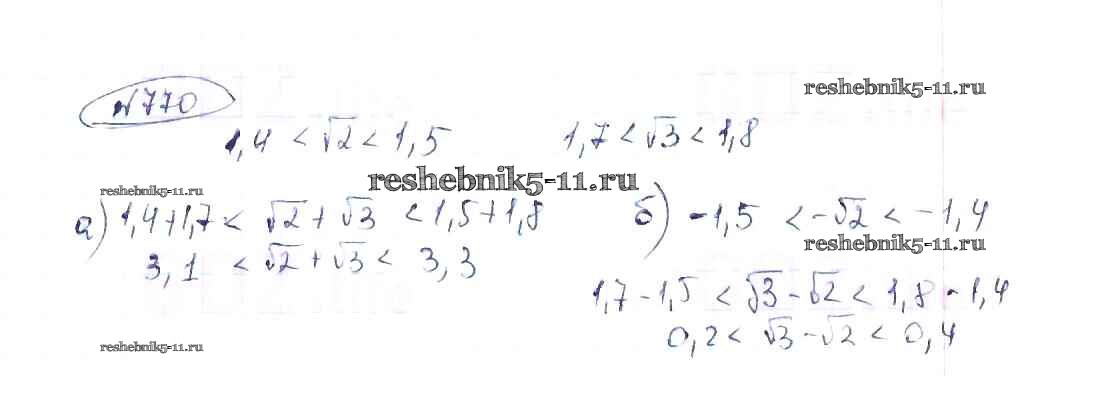 №770
reshebnik5-11.ru
1,4 < √2 < 1,5
1,7 < √3 < 1,8
reshebnik5-11.ru
reshebnik5-11.ru
а) 1,4+1,7 < √2 + √3 < 1,5+1,8
б) -1,5 < -√2 < -1,4
3,1 < √2 + √3 < 3,3
reshebnik5-11.ru
1,7-1,5 < √3-√2 < 1,8-1,4
0,2 < √3-√2 < 0,4
reshebnik5-11.ru